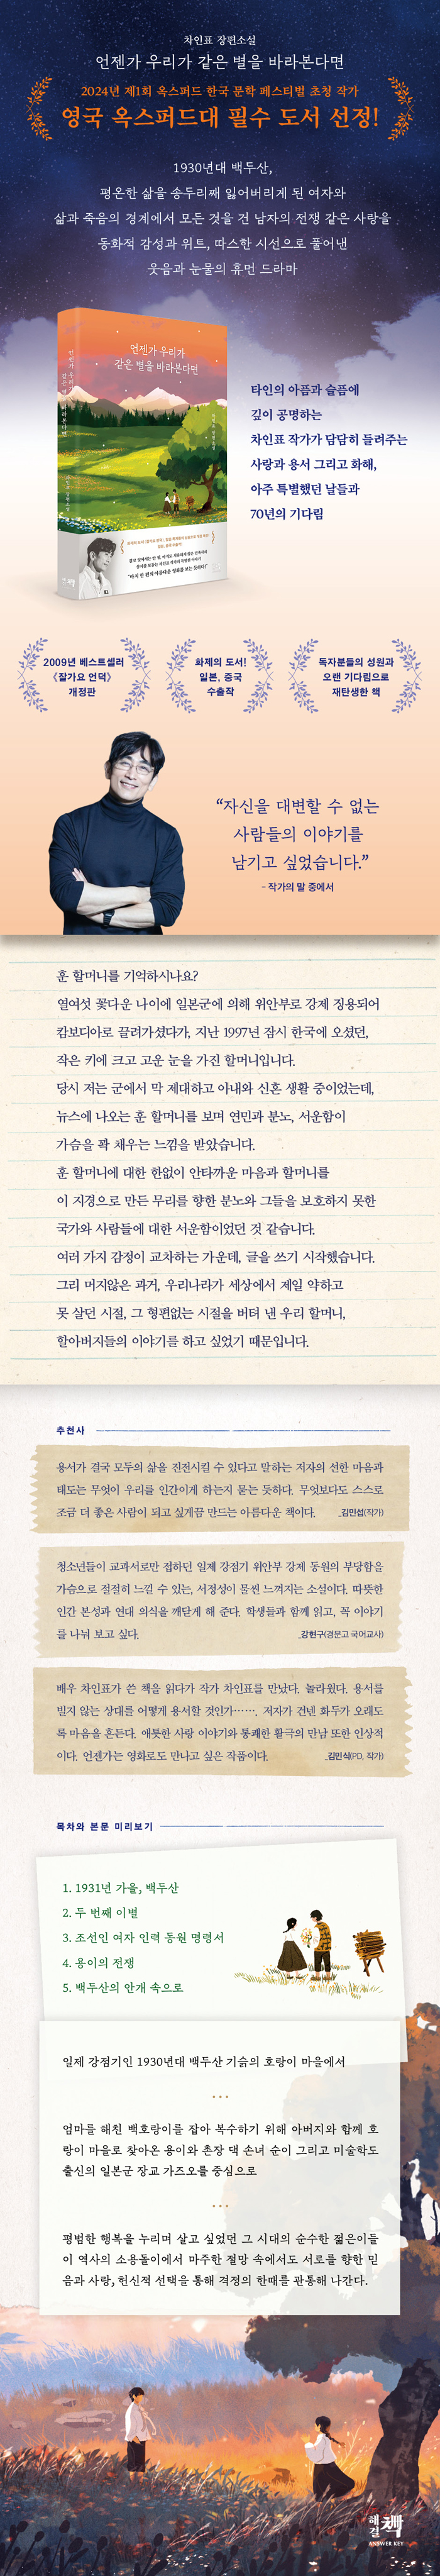 차인표 장편소설
언젠가 우리가 같은 별을 바라본다면
2024년 제1회 옥스퍼드 한국 문학 페스티벌 초청 작가
영국 옥스퍼드대 필수 도서 선정!
1930년대 백두산,
평온한 삶을 송두리째 잃어버리게 된 여자와
삶과 죽음의 경계에서 모든 것을 건 남자의 전쟁 같은 사랑을
동화적 감성과 위트, 따스한 시선으로 풀어낸
웃음과 눈물의 휴먼 드라마
언젠가 우리가
같은 별을 바라본다면
타인의 아픔과 슬픔에
깊이 공명하는
차인표 작가가 담담히 들려주는
사랑과 용서 그리고 화해,
아주 특별했던 날들과
70년의 기다림
2009년 베스트셀러
《잘가요 언덕》
개정판
화제의 도서!
일본, 중국
수출작
독자분들의 성원과
오랜 기다림으로
재탄생한 책
“자신을 대변할 수 없는
사람들의 이야기를
남기고 싶었습니다.”
- 작가의 말 중에서
훈 할머니를 기억하시나요?
열여섯 꽃다운 나이에 일본군에 의해 위안부로 강제 징용되어
캄보디아로 끌려가셨다가, 지난 1997년 잠시 한국에 오셨던,
작은 키에 크고 고운 눈을 가진 할머니입니다.
당시 저는 군에서 막 제대하고 아내와 신혼 생활 중이었는데,
뉴스에 나오는 훈 할머니를 보며 연민과 분노, 서운함이
가슴을 꽉 채우는 느낌을 받았습니다.
훈 할머니에 대한 한없이 안타까운 마음과 할머니를
이 지경으로 만든 무리를 향한 분노와 그들을 보호하지 못한
국가와 사람들에 대한 서운함이었던 것 같습니다.
여러 가지 감정이 교차하는 가운데, 글을 쓰기 시작했습니다.
그리 머지않은 과거, 우리나라가 세상에서 제일 약하고
못 살던 시절, 그 형편없는 시절을 버텨 낸 우리 할머니,
할아버지들의 이야기를 하고 싶었기 때문입니다.
추천사
용서가 결국 모두의 삶을 진전시킬 수 있다고 말하는 저자의 선한 마음과
태도는 무엇이 우리를 인간이게 하는지 묻는 듯하다. 무엇보다도 스스로
조금 더 좋은 사람이 되고 싶게끔 만드는 아름다운 책이다. _김민섭(작가)
청소년들이 교과서로만 접하던 일제 강점기 위안부 강제 동원의 부당함을
가슴으로 절절히 느낄 수 있는, 서정성이 물씬 느껴지는 소설이다. 따뜻한
인간 본성과 연대 의식을 깨닫게 해 준다. 학생들과 함께 읽고, 꼭 이야기
를 나눠 보고 싶다. _강현구(경문고 국어교사)
배우 차인표가 쓴 책을 읽다가 작가 차인표를 만났다. 놀라웠다. 용서를
빌지 않는 상대를 어떻게 용서할 것인가……. 저자가 건넨 화두가 오래도
록 마음을 흔든다. 애틋한 사랑 이야기와 통쾌한 활극의 만남 또한 인상적
이다. 언젠가는 영화로도 만나고 싶은 작품이다. _김민식(PD, 작가)
목차와 본문 미리보기
1. 1931년 가을, 백두산
2. 두 번째 이별
3. 조선인 여자 인력 동원 명령서
4. 용이의 전쟁
5. 백두산의 안개 속으로
일제 강점기인 1930년대 백두산 기슭의 호랑이 마을에서
• • •
엄마를 해친 백호랑이를 잡아 복수하기 위해 아버지와 함께 호
랑이 마을로 찾아온 용이와 촌장 댁 손녀 순이 그리고 미술학도
출신의 일본군 장교 가즈오를 중심으로
• • •
평범한 행복을 누리며 살고 싶었던 그 시대의 순수한 젊은이들
이 역사의 소용돌이에서 마주한 절망 속에서도 서로를 향한 믿
음과 사랑, 헌신적 선택을 통해 격정의 한때를 관통해 나간다.
해결책
ANSWER KEY